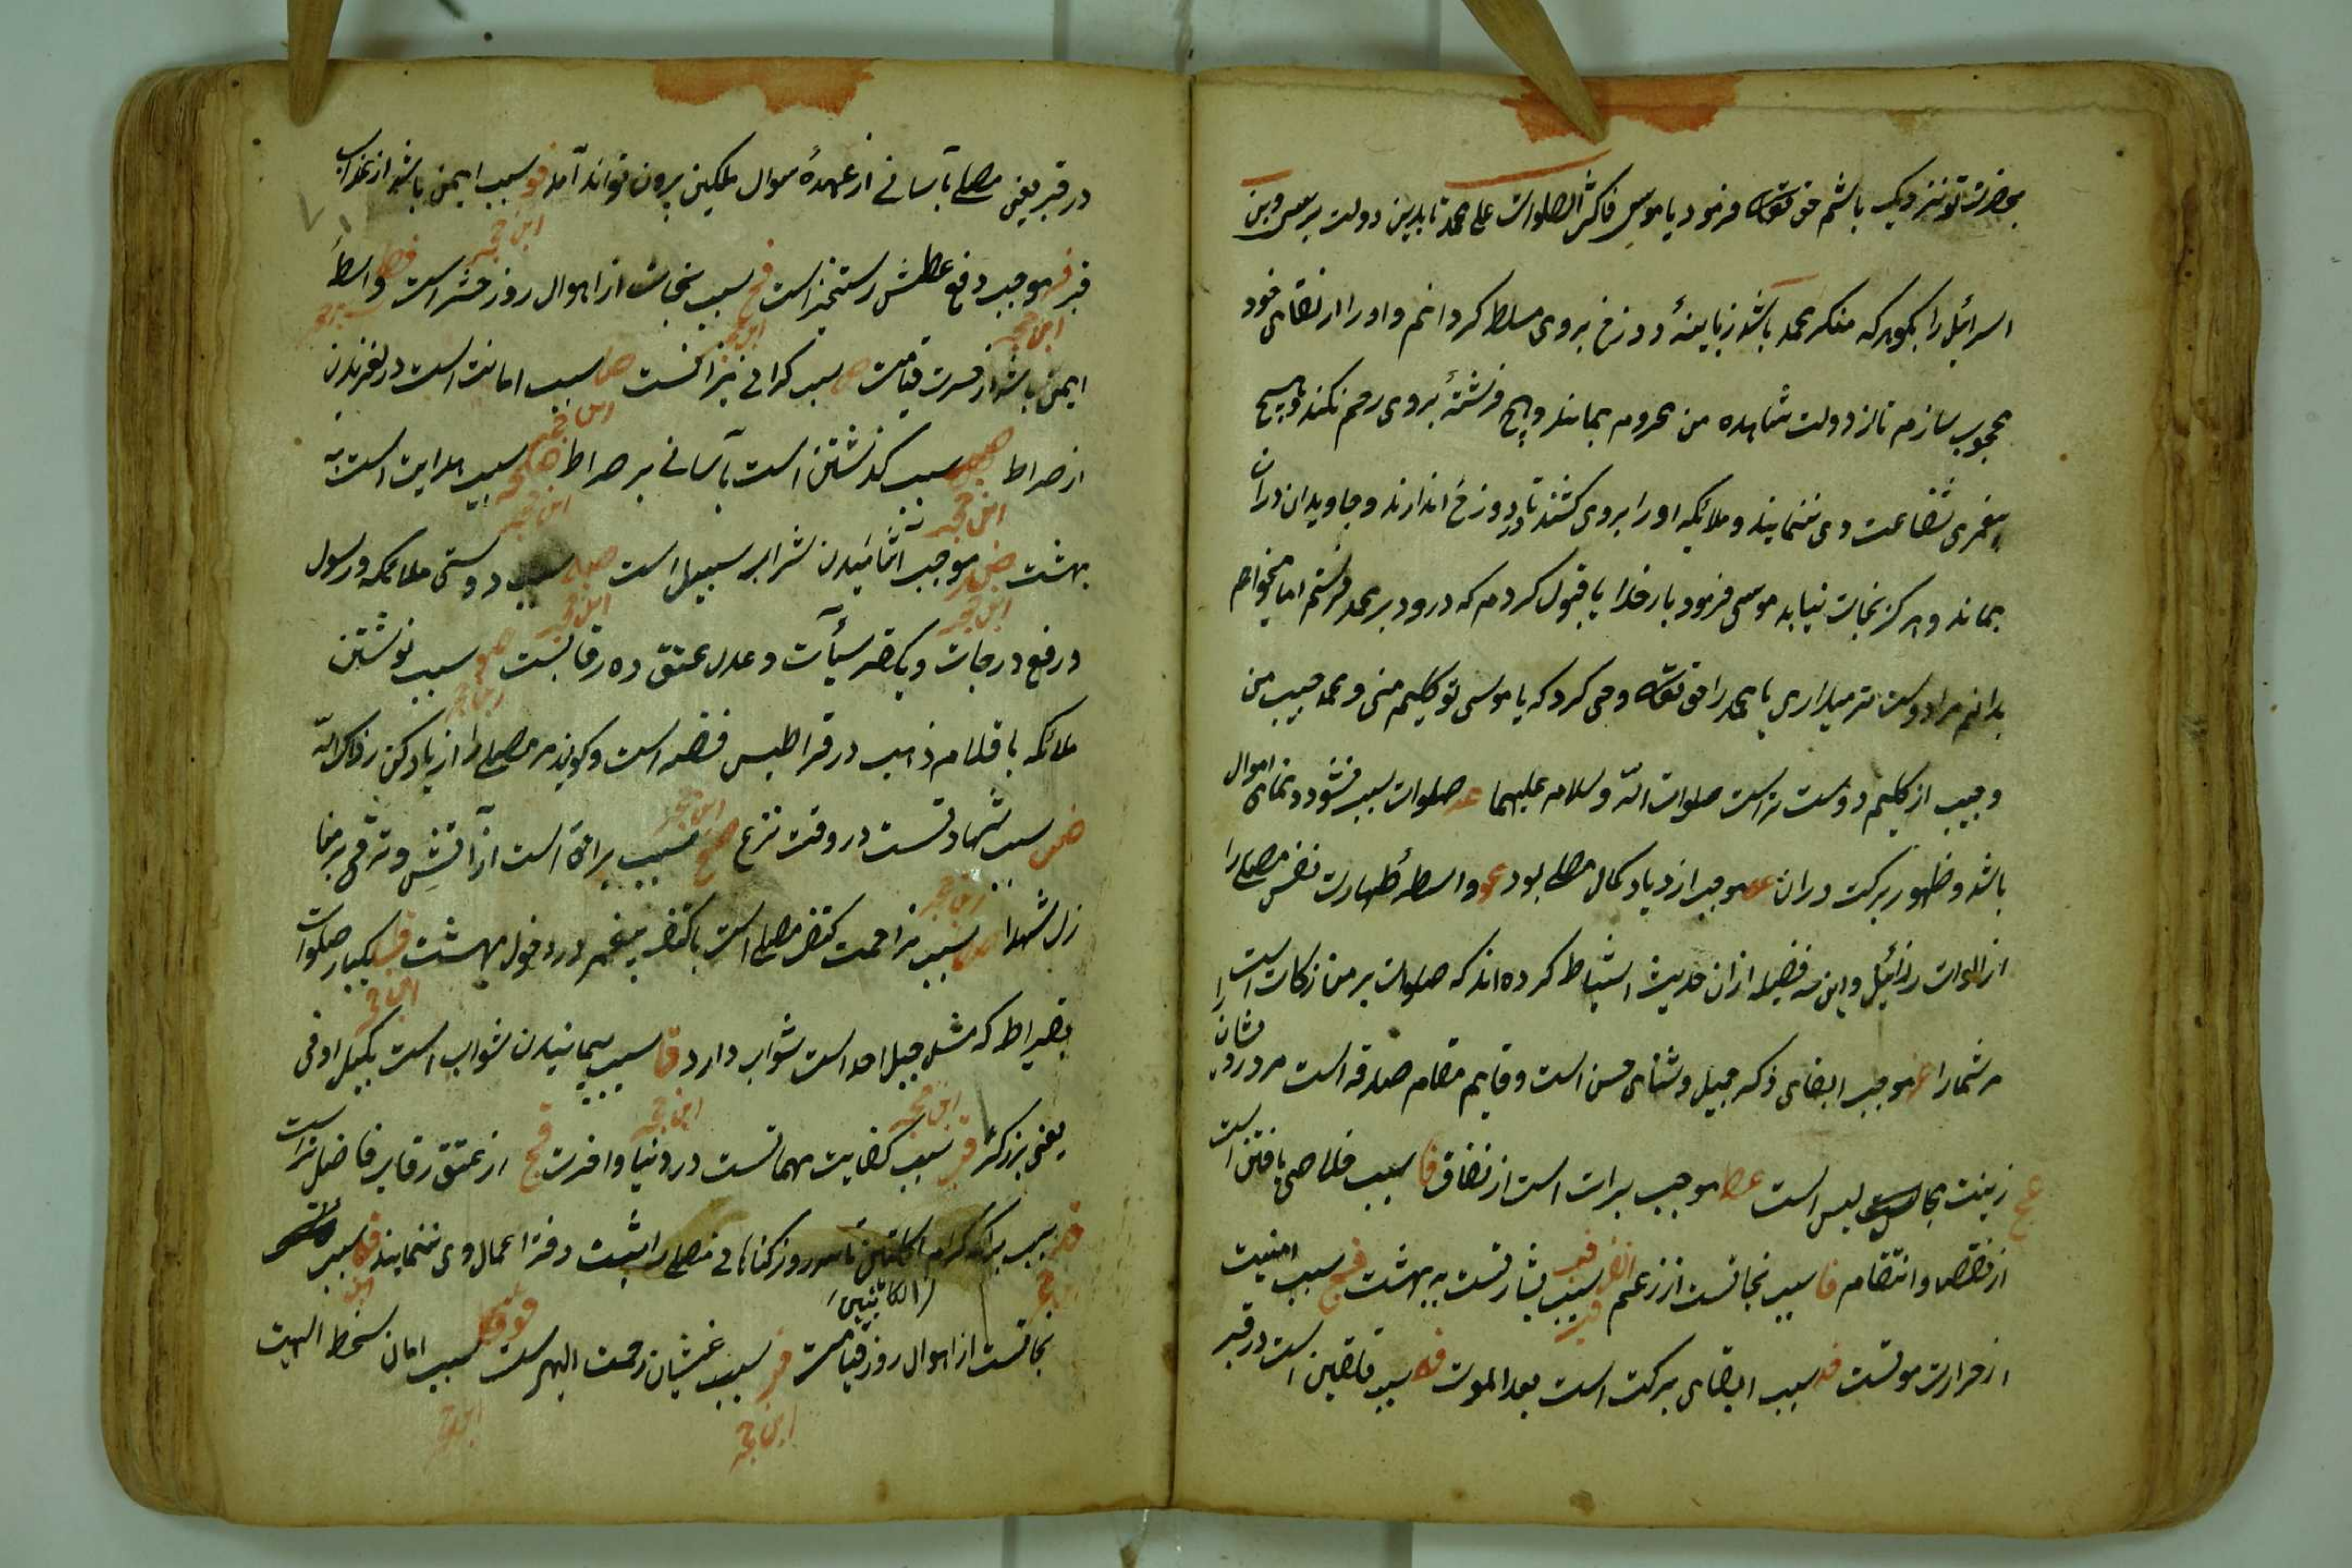 بحضرت تو نزدیک باشم حق تعالی فرمود یا موسی فاکثر الصلوات علی محمد تا بدین دولت برسی و بنی
اسرائیل را بگو هر که منکر محمد باشد زبانیهٔ دوزخ بر وی مسلط گردانم و او را از لقای خود
محجوب سازم تا از دولت مشاهده من محروم بماند و هیچ فرشتهٔ بر وی رحم نکند و هیچ
پیغمبری شفاعت وی ننماید و ملائکه او را بر وی کشند تا در دوزخ اندازند و جاویدان در آن
بماند و هرگز نجات نیابد موسی فرمود بار خدایا قبول کردم که درود بر محمد فرستم اما میخواهم
بدانم مرا دوست تر میداری یا محمد را حق تعالی وحی کرد که یا موسی تو کلیم منی و محمد حبیب من
و حبیب از کلیم دوست تر است صلوات الله و سلامه علیهما صلوات سبب نمای اموال
باشد و ظهور برکت در آن موجب ازدیاد کمال مصلی بود واسطهٔ طهارت نفس مصلی را
از الواث رذائل و این سه فضیله از آن حدیث استنباط کرده اند که صلوات بر من زکات است
مر شما را موجب ابقای ذکر جمیل و ثنای حسن است و قایم مقام صدقه است مر درویشان را
زینت مجالس است عط موجب برات است از نفاق فا سبب خلاصی یافتن است
از و انتقام فا سبب نجاتست از زعم انف سبب بشارتست به بهشت فج سبب امنیت
از حرارت موتست فد سبب ابقای برکت است بعد الموت فه سبب تلقین است در قبر
در قبر یعنی مصلی بآسانی از عهدهٔ سوال ملکین بیرون تواند آمد فو سبب ایمن باشد از عذاب
قبر فز موجب دفع عطش رستخیز است فح سبب نجات از اهوال روز حشر است فط واسطهٔ
ابن حجر
ایمن باشد از حسرت قیامت ص سبب گرانی میزانست صا سبب امانت است در لغزیدن
ابن حجر
از صراط صب سبب گذشتن است بآسانی بر صراط صج سبب هدایت است به
ابن حجر
بهشت صد موجب آشامیدن شراب سلسبیل است صه سبب دوستی ملائکه و رسول
ابن حجر
و رفع درجات و تکفیر سیآت و عدل عتق ده رقابست صو سبب نوشتن
ابن حجر
ملائکه باقلام ذهب در قراطیس فضه است و گویند مر مصلی را زیاد کن زادک الله
صز سبب شهادتست در وقت نزع صح سبب براة است از آتش و ترقی بر منا
ابن حجر
زل شهدا صط سبب مزاحمت کتف مصلی است با کتف پیغمبر در دخول بهشت ق یکبار صلوات
ابن حجر
بقیراط که مثل جبل احد است ثواب دارد قا سبب پیمانیدن ثواب است بکیل اوفی
ابن حجر
یعنی بزرگتر قب سبب کفایت مهماتست در دنیا و آخرت قج از عتق رقاب فاضلتر است
ابن حجر
قد سبب کرام الکاتبین تا سه روز گناهانی مصلی را ثبت دفتر اعمال وی ننمایند قه سبب
الکاتبین
نجاتست از اهوال روز قیامت قو سبب غشیان رحمت الهیست قز سبب امان سخط الهیت
ابن حجر
ابن حجر